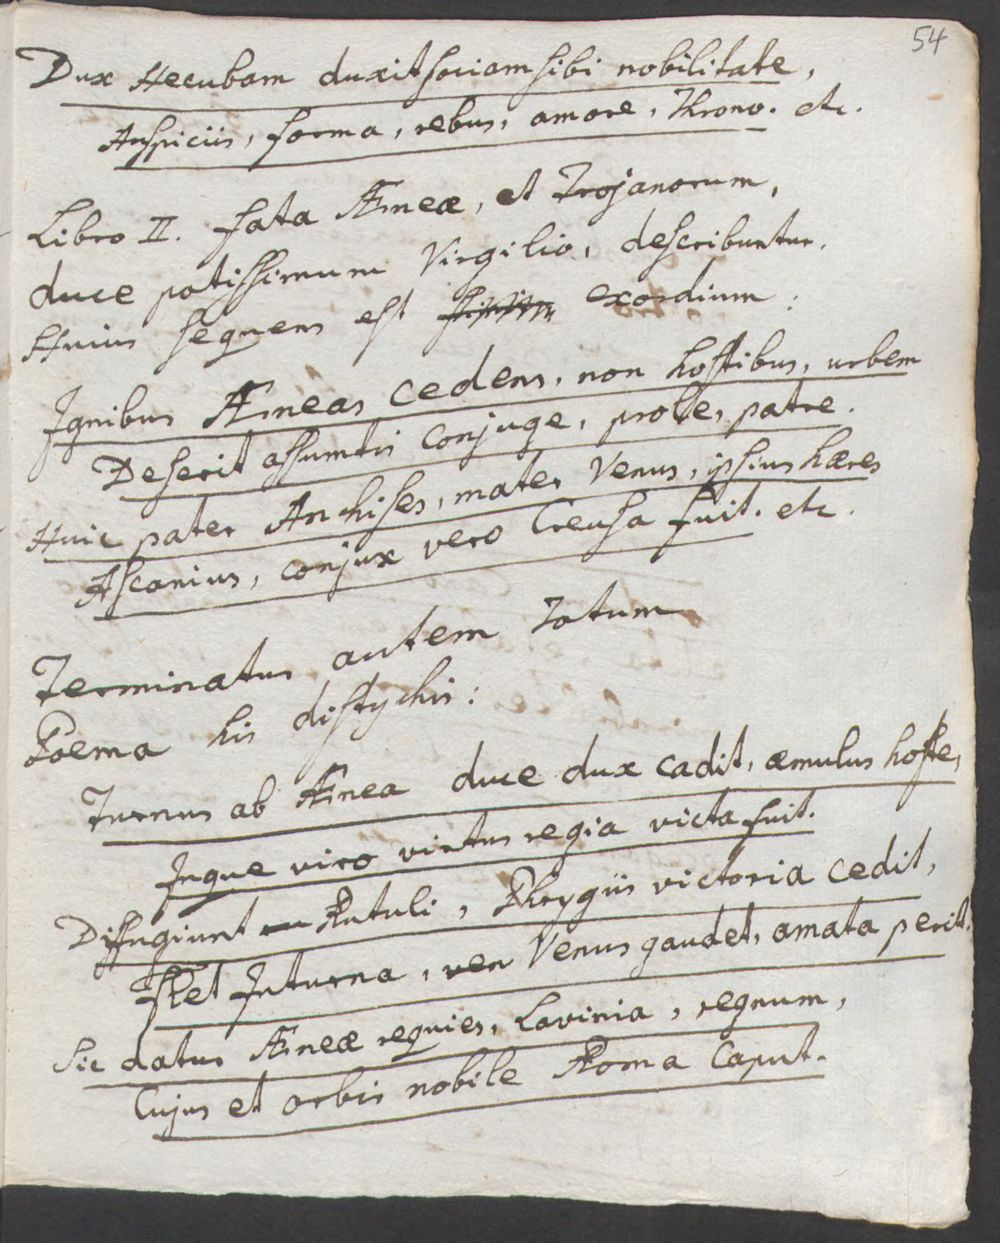 54
Dux Hecubam duxit sociam sibi nobilitate,
Auspiciis, forma, rebus, amore, Throno. etc.
Libro II. fata Æneæ, et Trojanorum,
duce potissimum Virgilio, describuntur.
Huius sequens est exordium:
Ignibus Æneas cedens, non hostibus, urbem
Deserit assumtis conjuge, prole, patre.
Huic pater Anchises, mater Venus, ipsius hæres
Ascanius, conjux vero Creusa fuit. etc.
Terminatur autem totum
Poema his distychis:
Turnus ab Ænea duce dux cadit, æmulus hoste,
Inque viro virtus regia victa fuit.
Diffugiunt Rutuli, Phrygiis victoria cedit,
Flet Juturna, Venus gaudet, amata perit.
Sic datur Æneæ requies, Lavinia, regnum,
Cujus et orbis nobile Roma Caput.